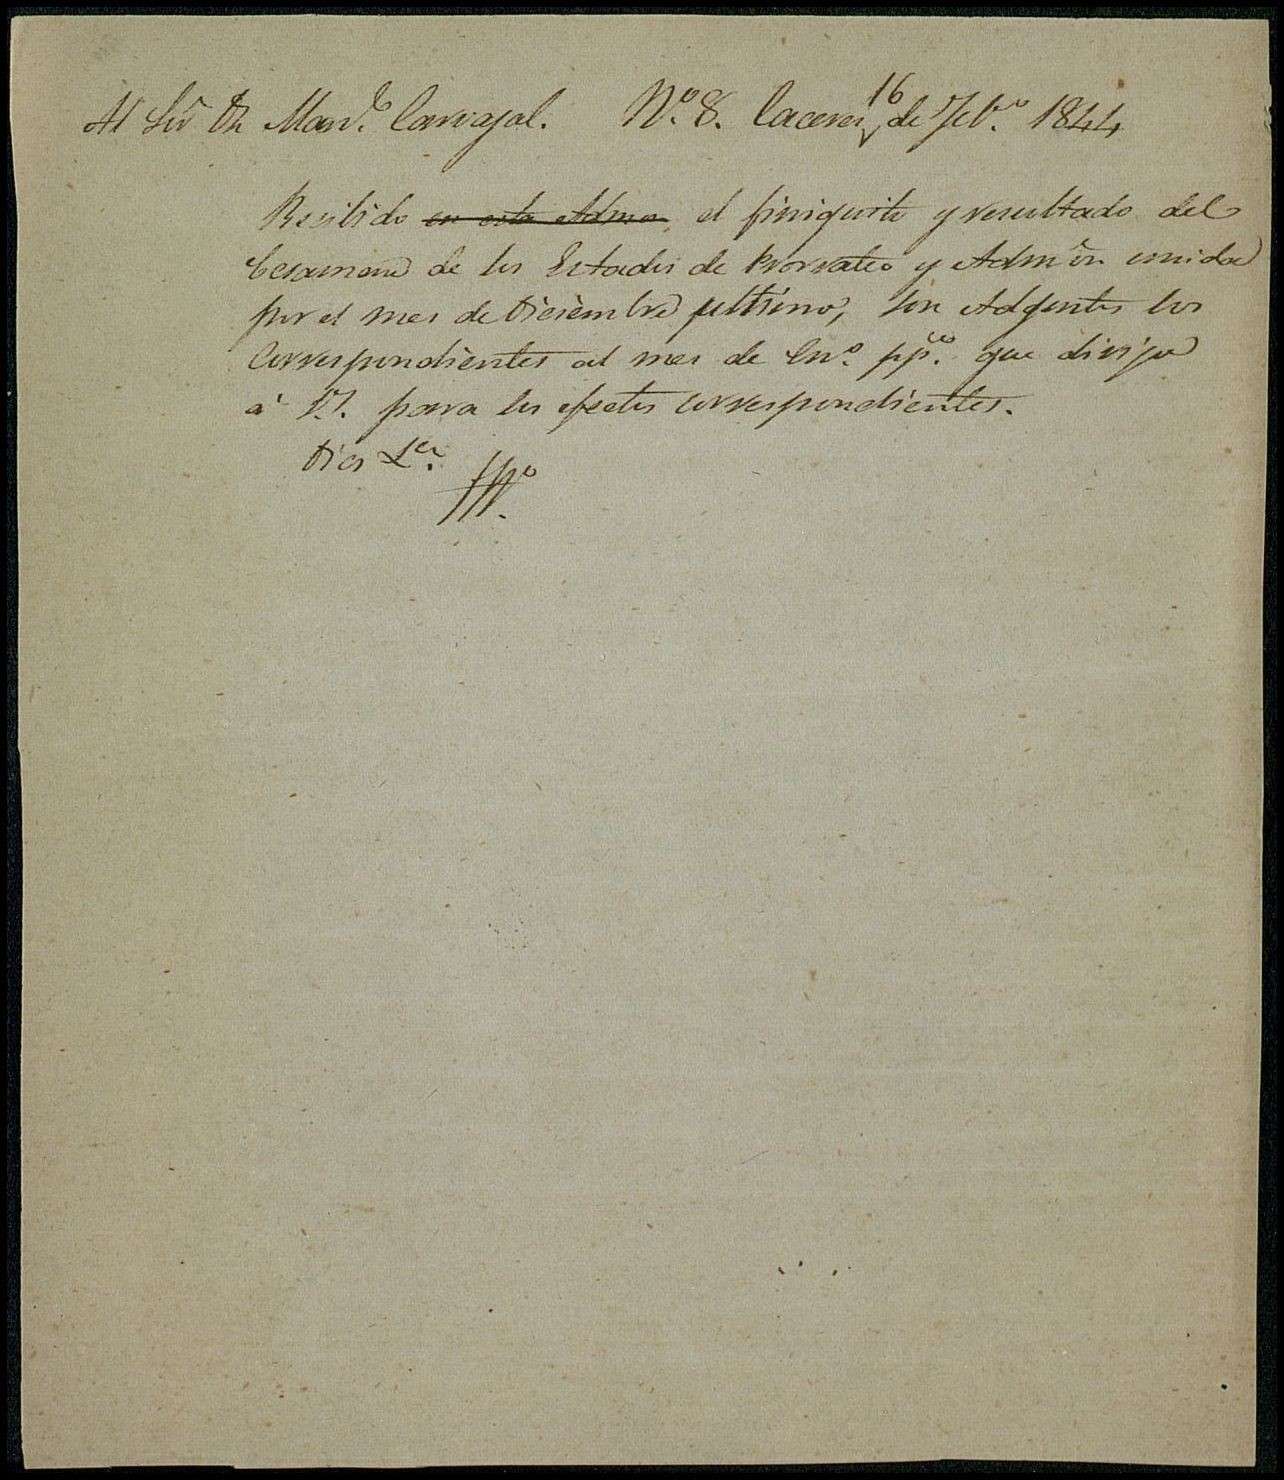 Al Sor Dn Manl. Carvajal. No. 8. Caceres 16 de Febo. 1844
Recibido en esta Admon el finiquito y resultado del
Cesamen de los Estados de Prorrateo y Admon unida
por el mes de Diciembre ultimo, son Adjuntos los
Correspondientes al mes de Eno. ppdo. que dirijo
á V. para los efectos correspondientes.
Dios La.